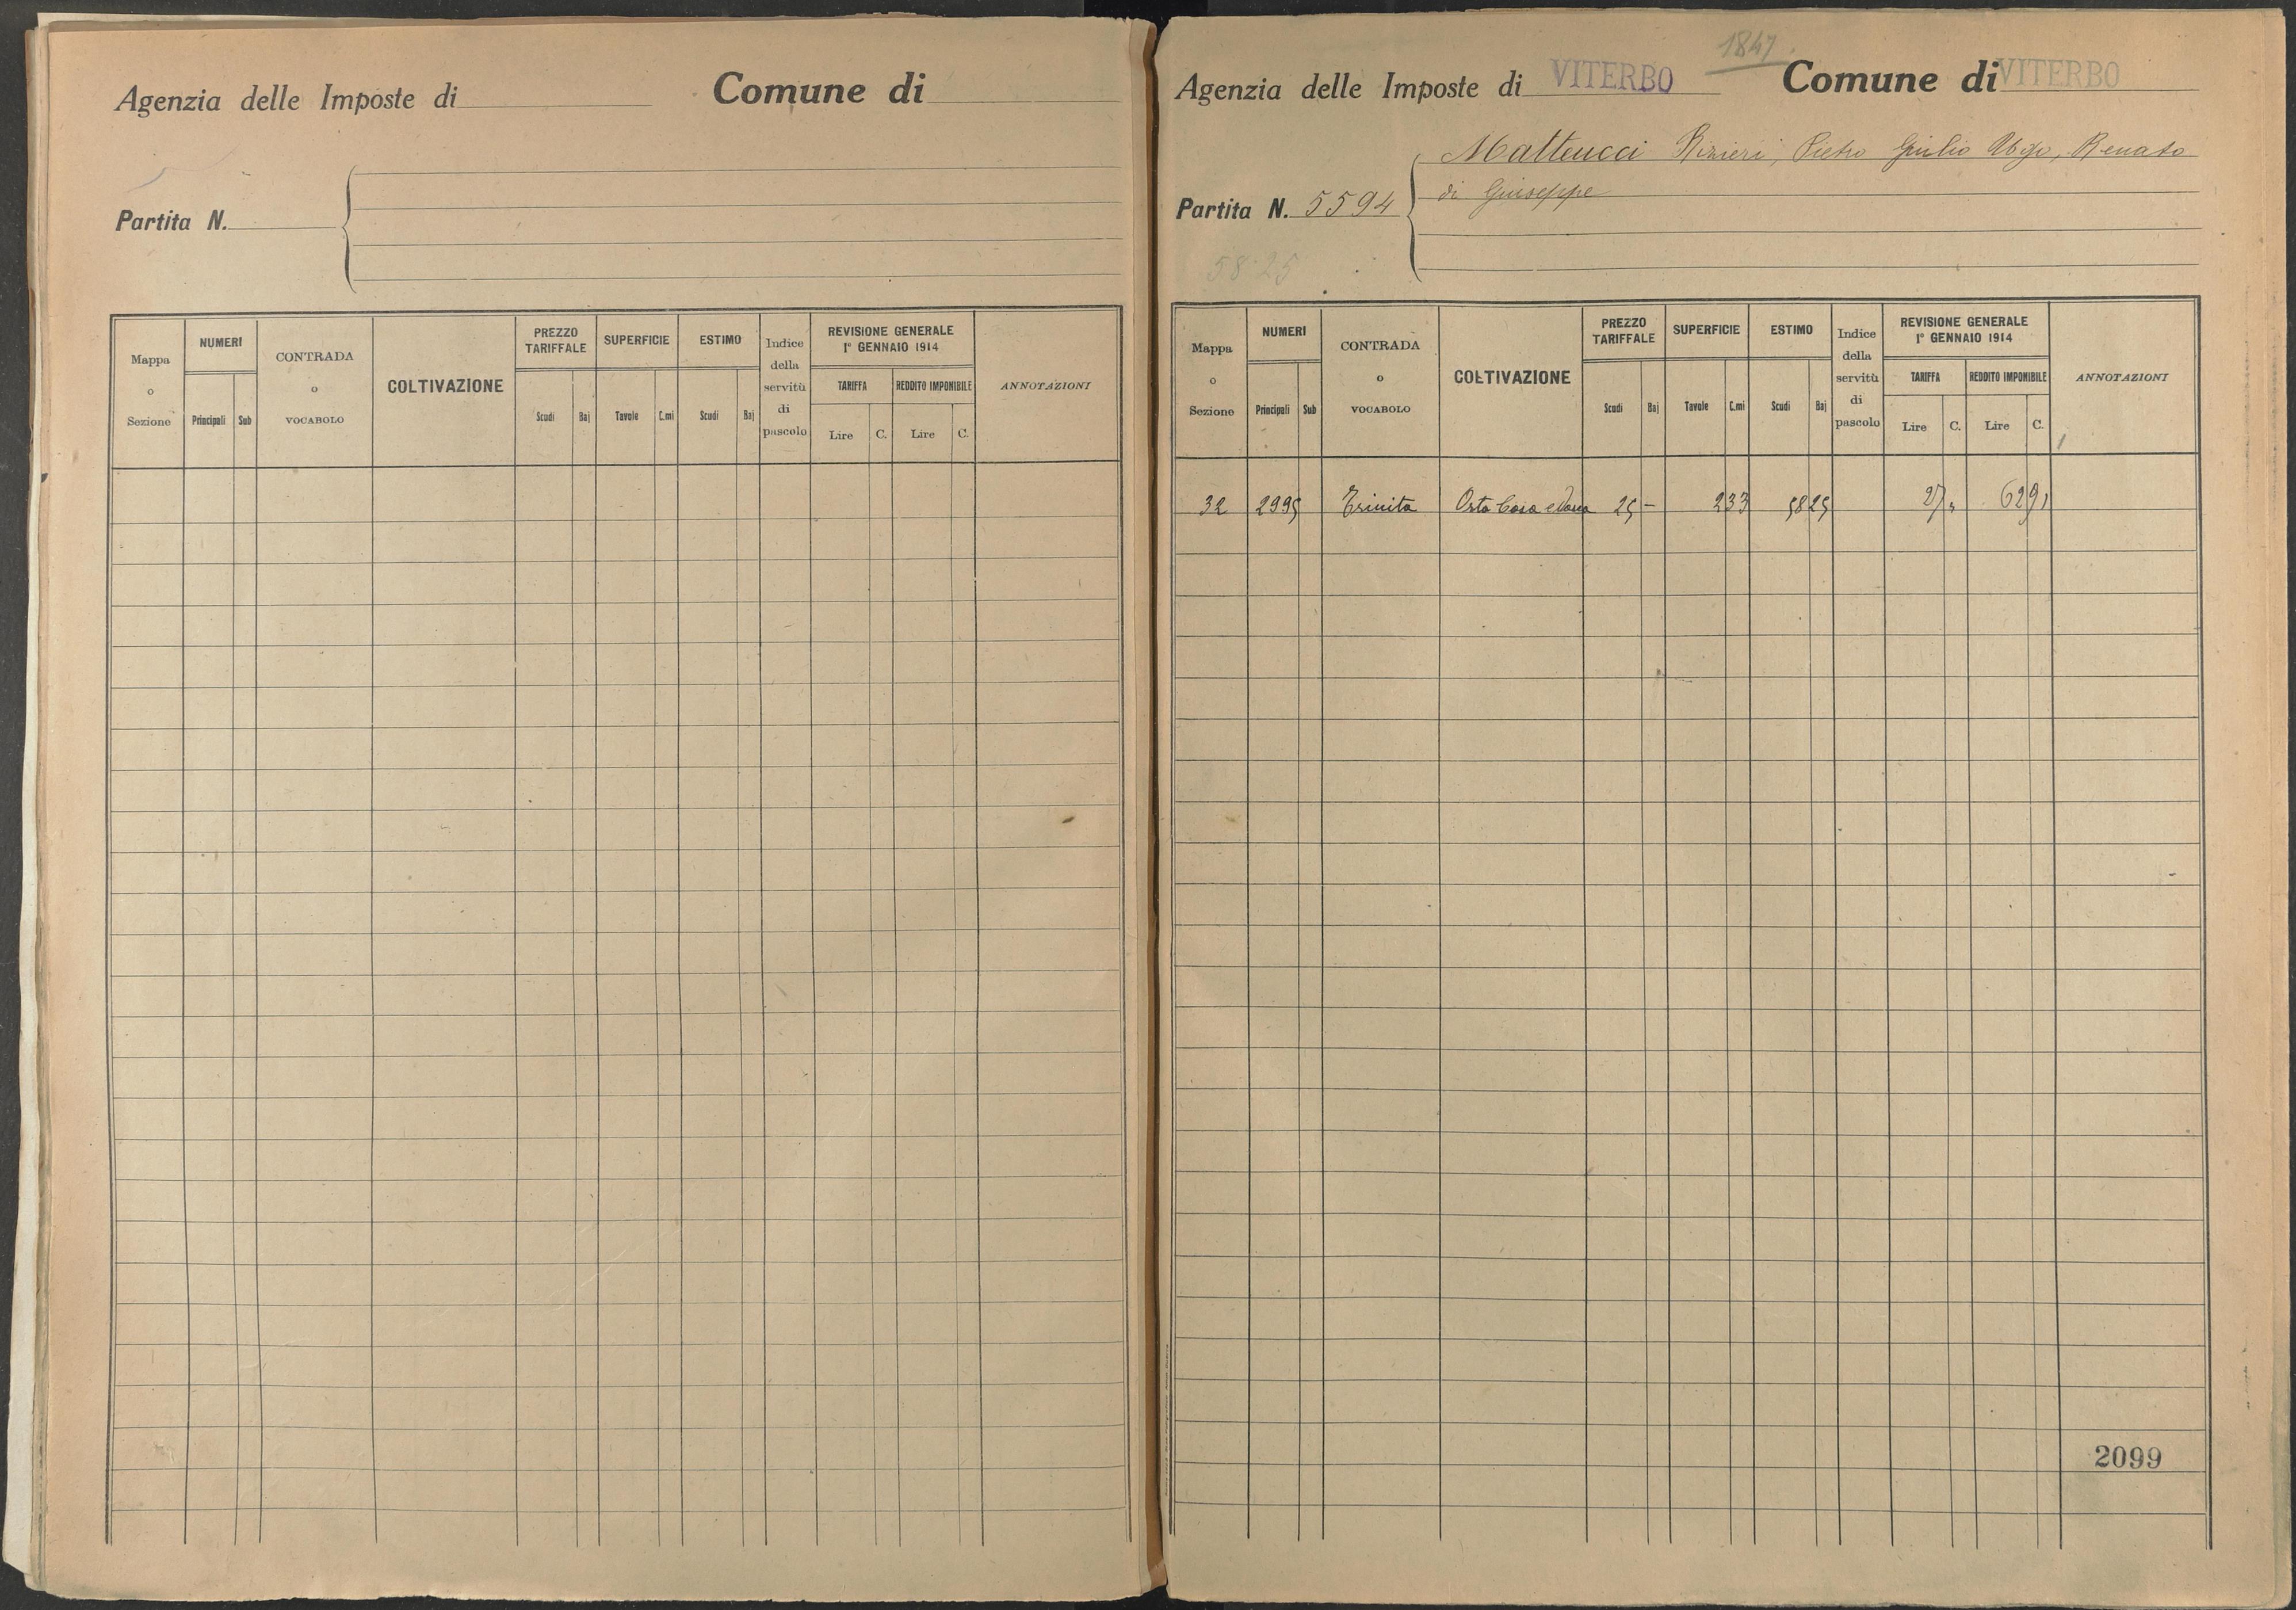 Agenzia delle Imposte di Comune di
Partita N.
Mappa o Sezione NUMERI CONTRADA o VOCABOLO COLTIVAZIONE PREZZO TARIFFALE SUPERFICIE ESTIMO Indice della servitù di pascolo REVISIONE GENERALE 1° GENNAIO 1914 ANNOTAZIONI
Principali Sub Scudi Baj Tavole C.mi Scudi Baj TARIFFA REDDITO IMPONIBILE
Lire C. Lire C.
1847
Agenzia delle Imposte di VITERBO Comune di VITERBO
Matteucci Rizieri, Pietro Giulio Ugo, Renato
di Giuseppe
Partita N. 5594
58.25
Mappa o Sezione NUMERI CONTRADA o VOCABOLO COLTIVAZIONE PREZZO TARIFFALE SUPERFICIE ESTIMO Indice della servitù di pascolo REVISIONE GENERALE 1° GENNAIO 1914 ANNOTAZIONI
Principali Sub Scudi Baj Tavole C.mi Scudi Baj TARIFFA REDDITO IMPONIBILE
Lire C. Lire C.
32 2995 Trinita Orto Casa e 25 - 2 33 58 25 27 " 62 91
2099